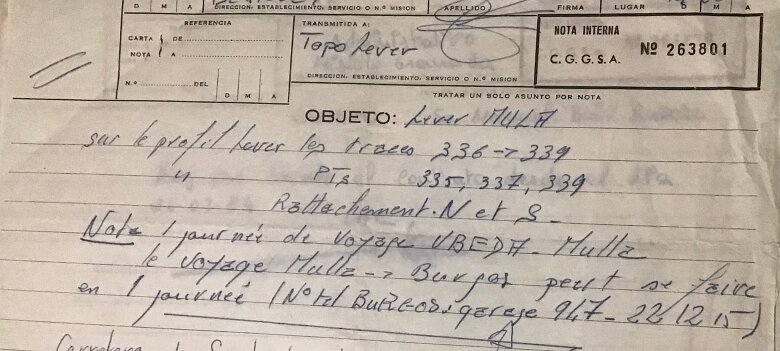 D M A DIRECCION, ESTABLECIMIENTO, SERVICIO O N.º MISION APELLIDO FIRMA LUGAR D M A
REFERENCIA
CARTA DE
NOTA A
N.º DEL D M A
TRANSMITIDA A:
Topo Lever
DIRECCION, ESTABLECIMIENTO, SERVICIO O N.º MISION
NOTA INTERNA
C.G.G.S.A. Nº 263801
TRATAR UN SOLO ASUNTO POR NOTA
OBJETO: Lever MULA
sur le profil Lever les traces 336 → 339
" PTs 335, 337, 339
Rattachement. N et S.
Nota 1 journée de voyage UBEDA - Mulla
le voyage Mulla → Burgos peut se faire
en 1 journée (Notel BURGOS. garage 947 - 22 12 15)